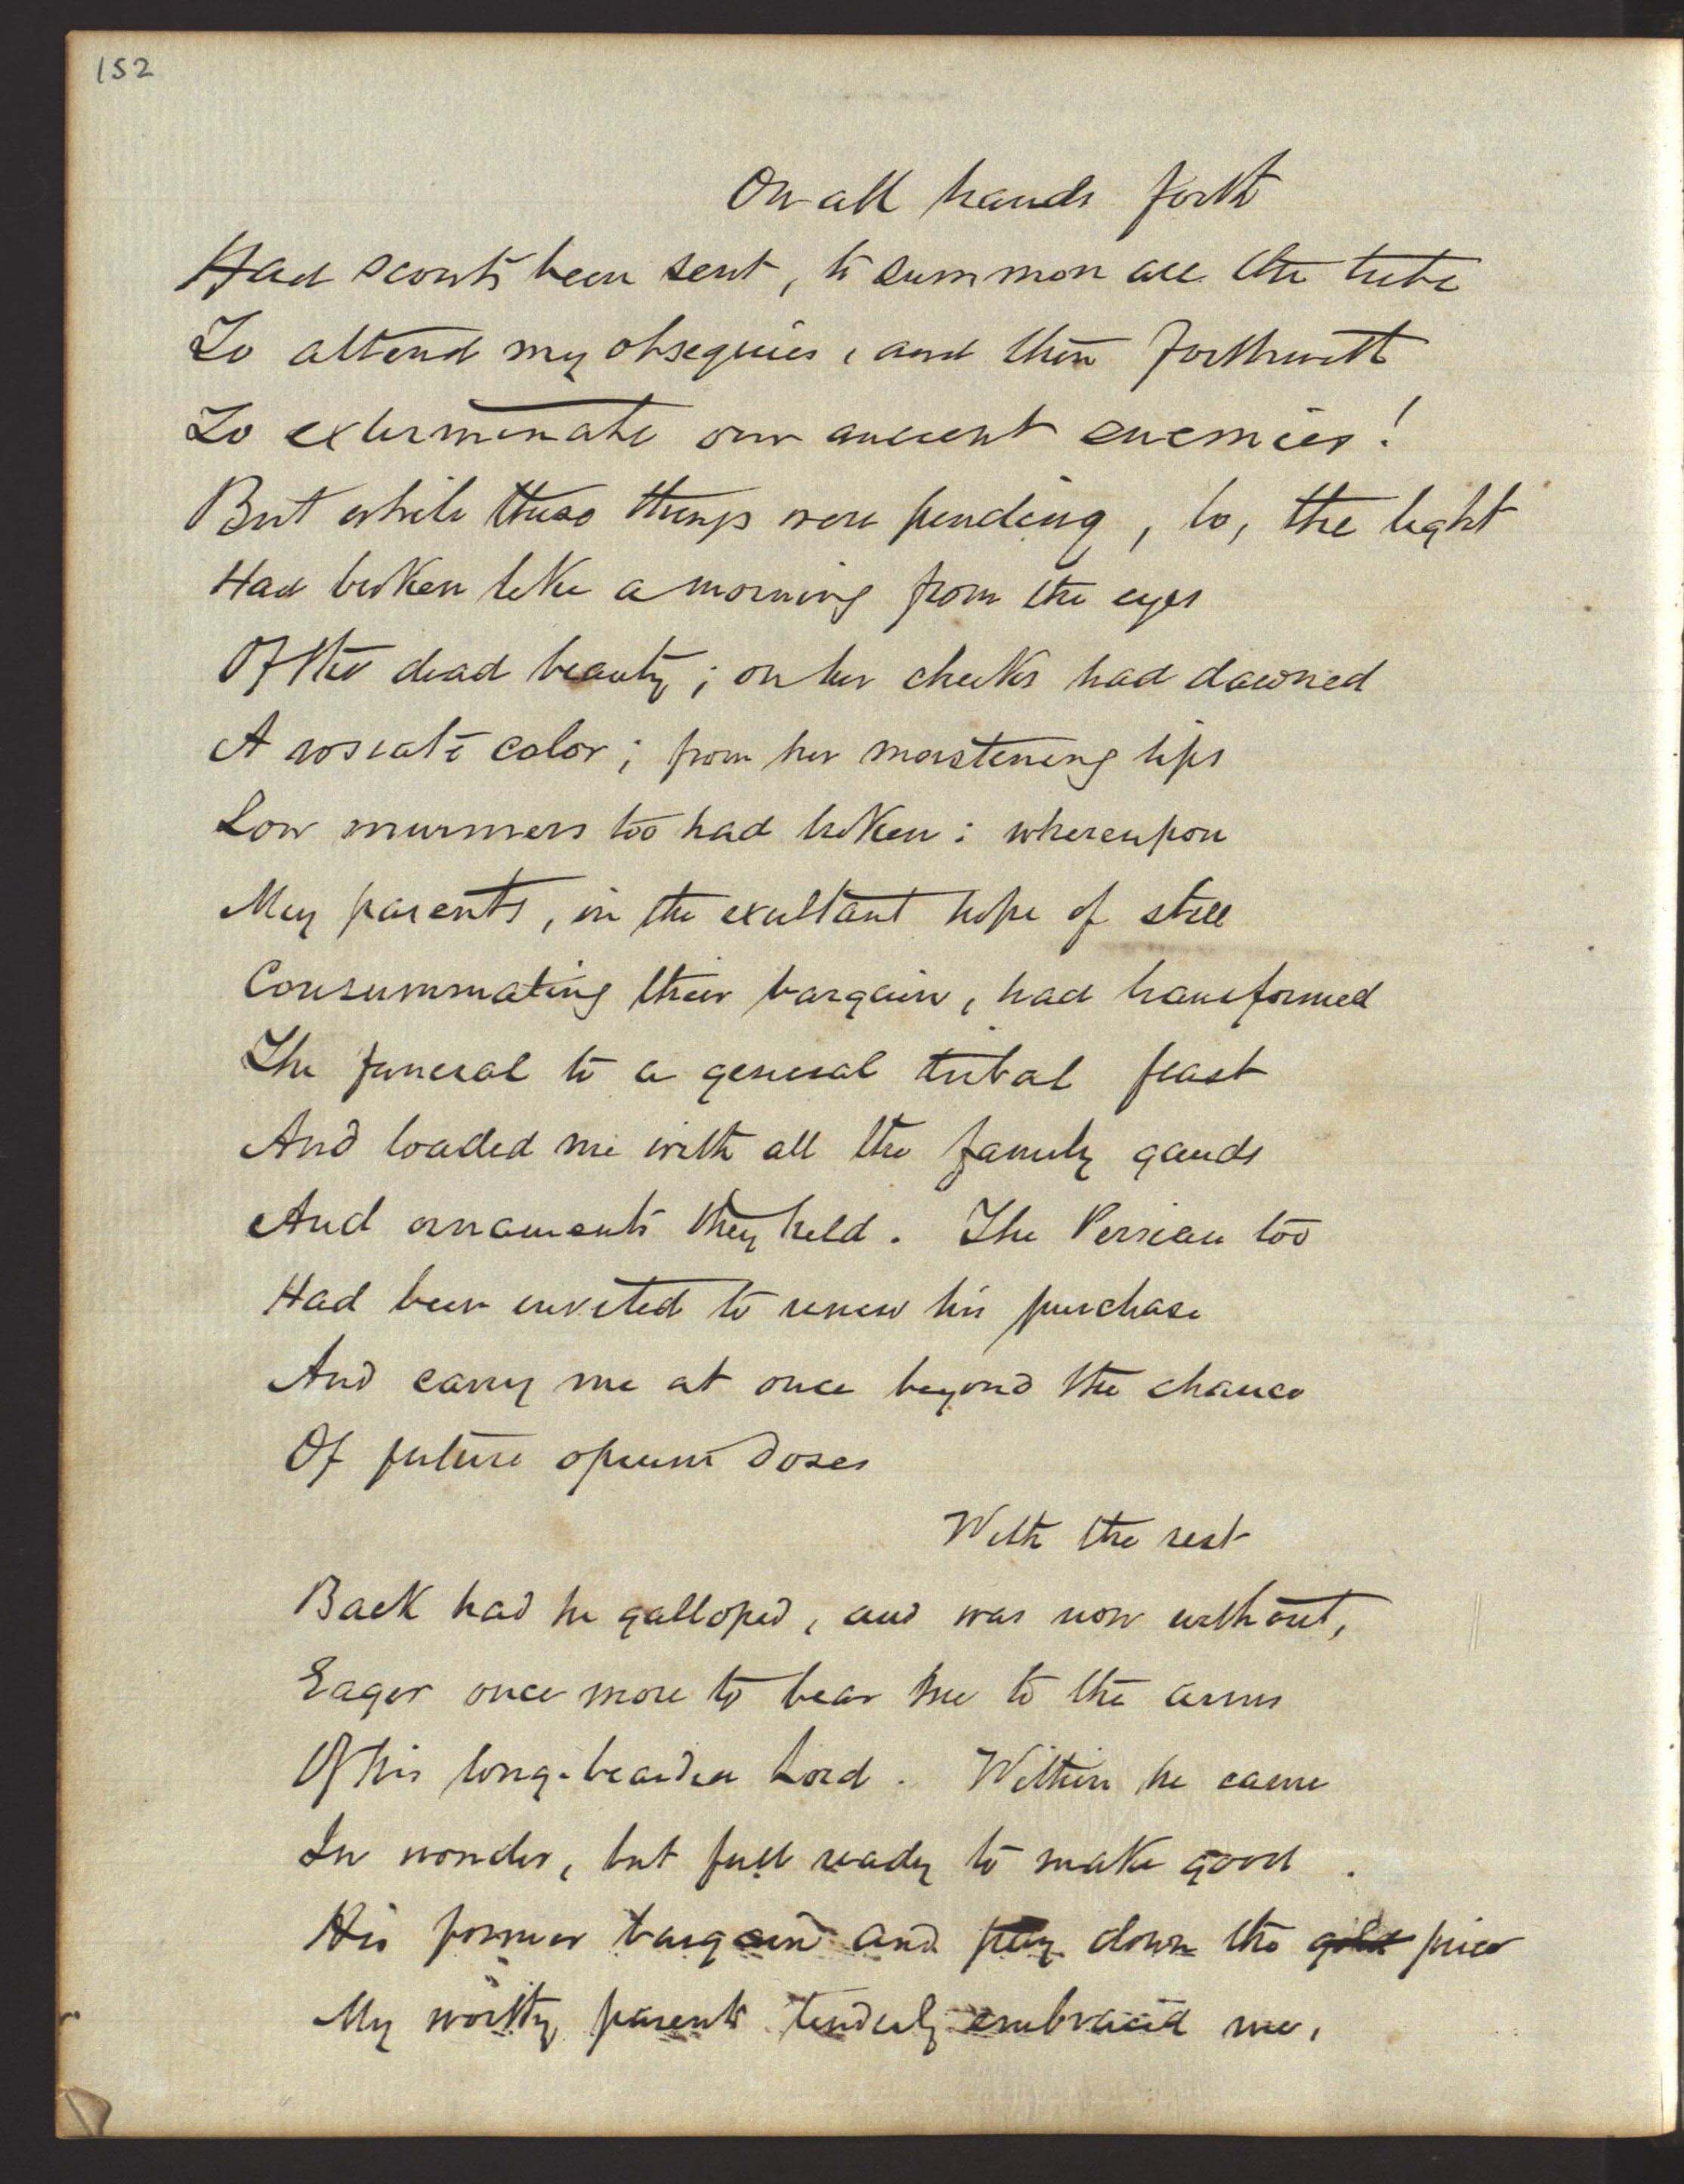 152
On all hands forth
Had scouts been sent, to summon all the tribe
To attend my obsequies, and then forthwith
To exterminate our ancient enemies!
But while these things were pending, lo, the light
Had broken like a morning from the eyes
Of the dead beauty; on her cheeks had dawned
A roseate color; from her moistening lips
Low murmers too had broken: whereupon
My parents, in the exultant hope of still
Consummating their bargain, had transformed
The funeral to a general tribal feast
And loaded me with all the family gauds
And ornaments they held. The Persian too
Had been invited to renew his purchase
And carry me at once beyond the chance
Of future opium doses
With the rest
Back had he galloped, and was now without,
Eager once more to bear me to the arms
Of his long-bearded Lord. Within he came
In wonder, but full ready to make good.
His former bargain and pay down the gold price
My worthy parents tenderly embraced me,